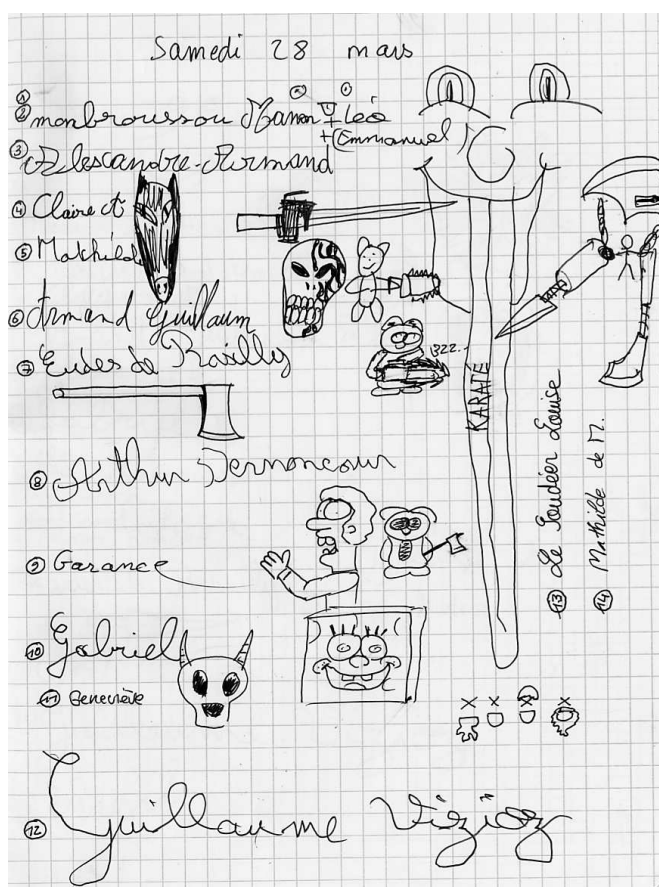 Samedi 28 mars
①
② monbroussou Manon + Léo
+ (Emmanuel)
③ Alescandre-Armand
④ Claire A
⑤ Mathilde
⑥ Armand Guillaum
⑦ Eudes de Rosilly
BZZ..
KARATE
⑧ Arthur Dernoncour
⑨ Garance
⑩ Gabriel
⑪ Geneviève
⑫ Guillaume Vizioz
⑬ Le Louise
⑭ Mathilde de M.